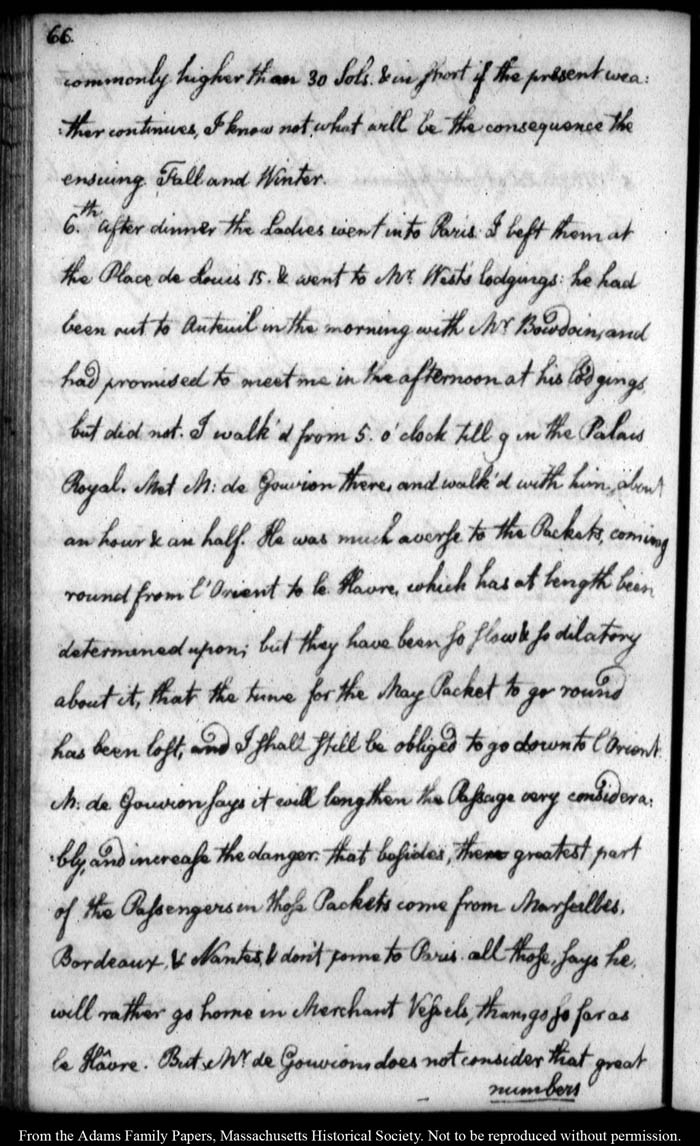 66.
commonly higher than 30 Sols. & in short if the present wea:
:ther continues, I know not what will be the consequence the
ensuing Fall and Winter.
6.th After dinner the Ladies went into Paris. I left them at
the Place de Louis 15. & went to Mr. West's lodgings: he had
been out to Auteuil in the morning with Mr. Bowdoin, and
had promised to meet me in the afternoon at his lodgings,
but did not. I walk'd from 5. o'clock till 9 in the Palais
Royal. Met M: de Gouvion there, and walk'd with him, about
an hour & an half. He was much averse to the Packets, coming
round from l'Orient to le Havre, which has at length been
determined upon; but they have been so slow & so dilatory
about it, that the time for the May Packet to go round
has been lost, and I shall still be obliged to go down to l'Orient.
M: de Gouvion says it will lengthen the Passage very considera:
:bly, and increase the danger: that besides, the greatest part
of the Passengers in those Packets come from Marseilles,
Bordeaux, & Nantes, & don't come to Paris. all those, says he,
will rather go home in Merchant Vessels, than go so far as
le Hâvre. But Mr. de Gouvion does not consider that great
numbers
From the Adams Family Papers, Massachusetts Historical Society. Not to be reproduced without permission.